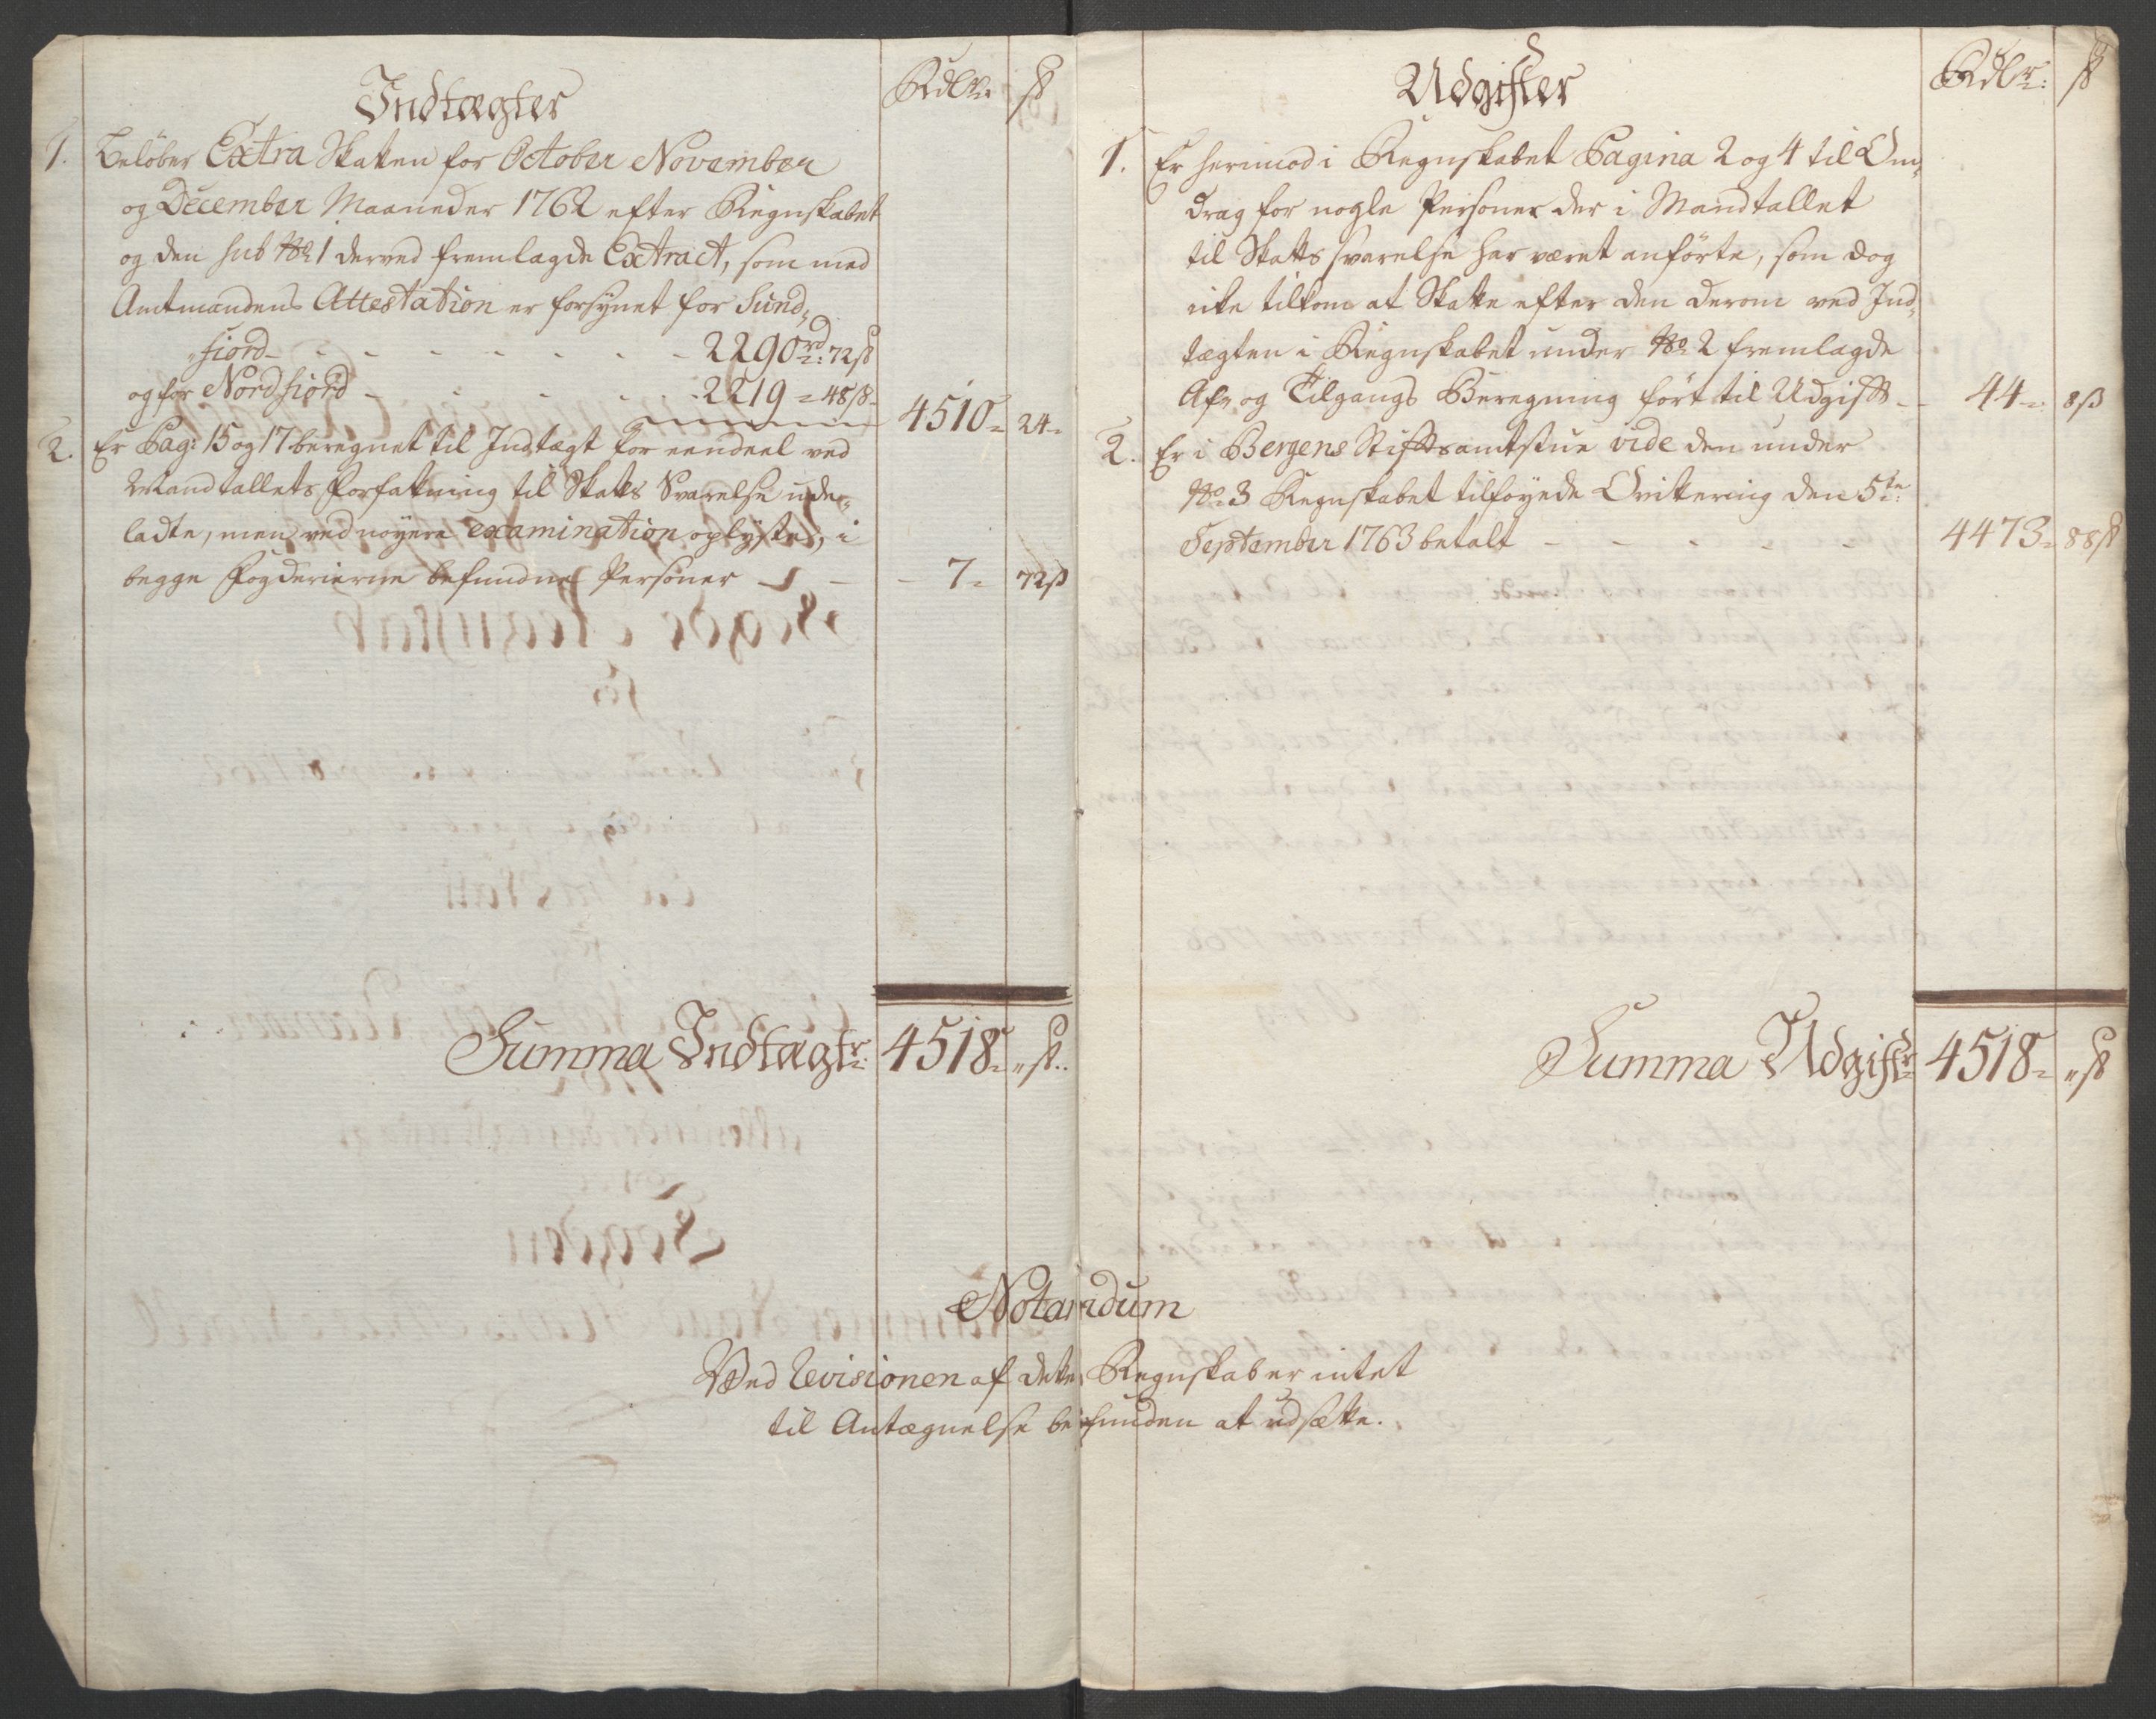 Indtægter
Rdlr: ß
1. Beløber Extra Skatten for October November
og December Maaneder 1762 efter Regnskabet
og den sub No 1 derved fremlagde Extract, som med
Amtmandens Attestation er forsynet for Sund„
„fiord - - - - - - - 2290 rd: 72 ß
og for Nordfiord - - - - - 2219 = 48 ß -
4510 = 24 =
2. Er Pag: 15 og 17 beregnet til Indtægt for eendeel ved
Mandtallets Forfatning til Skatts Svarelse ude„
ladte, men ved nøyere examination oplyste, i
begge Fogderierne befundne Personer - - - 7 = 72 ß
Summa Indtægtr: 4518 = „ ß
Udgifter
Rdlr: ß
1. Er herimod i Regnskabet Pagina 2 og 4 til Om„
drag for nogle Personer der i Mandtallet
til Skatts svarelse har været anførte, som dog
icke tilkom at Skatte efter den derom ved Ind„
tægten i Regnskabet under No 2 fremlagde
Af„ og Tilgangs Beregning ført til Udgift - 44 = 8 ß
2. Er i Bergens Stiftsamtstue vide den under
No 3 Regnskabet tilføyede Qvittering den 5te
September 1763 betalt - - - - - 4473 = 88 ß
Summa Udgiftr 4518 = „ ß
Notandum
Ved Revisionen af dette Regnskab er intet
til Antægnelse befunden at udsætte.